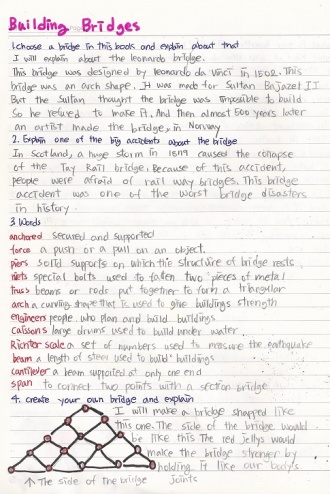 Building Bridges
1. choose a bridge in this book and explain about that
I will explain about the leonardo bridge.
This bridge was designed by leonardo da Vinci in 1502. This
bridge was an arch shape. It was made for Sultan Bajazet II
But the Sultan thought the bridge was impossible to build
So he refused to make it. And then almost 500 years later
an artist made the bridge, in Norway
2. Explain one of the big accidents about the bridge
In Scotland, a huge storm in 1879 caused the collapse
of the Tay Rail bridge. Because of this accident,
people were afraid of rail way bridges. This bridge
accident was one of the worst bridge disasters
in history.
3 Words
anchored secured and supported
force a push or a pull on an object.
piers solid supports on which the structure of bridge rests
special bolts used to faten two pieces of metal
truss beams or rods put together to form a triangular
arch a curving shape that is used to give buildings strength
engineers people who plan and build buildings
caissons large drums used to build under water
Richter scale a set of numbers used to measure the earthquake
beam a length of steel used to build buildings
cantilever a beam supported at only one end
span to connect two points with a section bridge
4. create your own bridge and explain
I will make a bridge shapped like
this one. The side of the bridge would
be like this The red jellys would
make the bridge stronger by
holding it like our body's
joints
↑ The side of the bridge